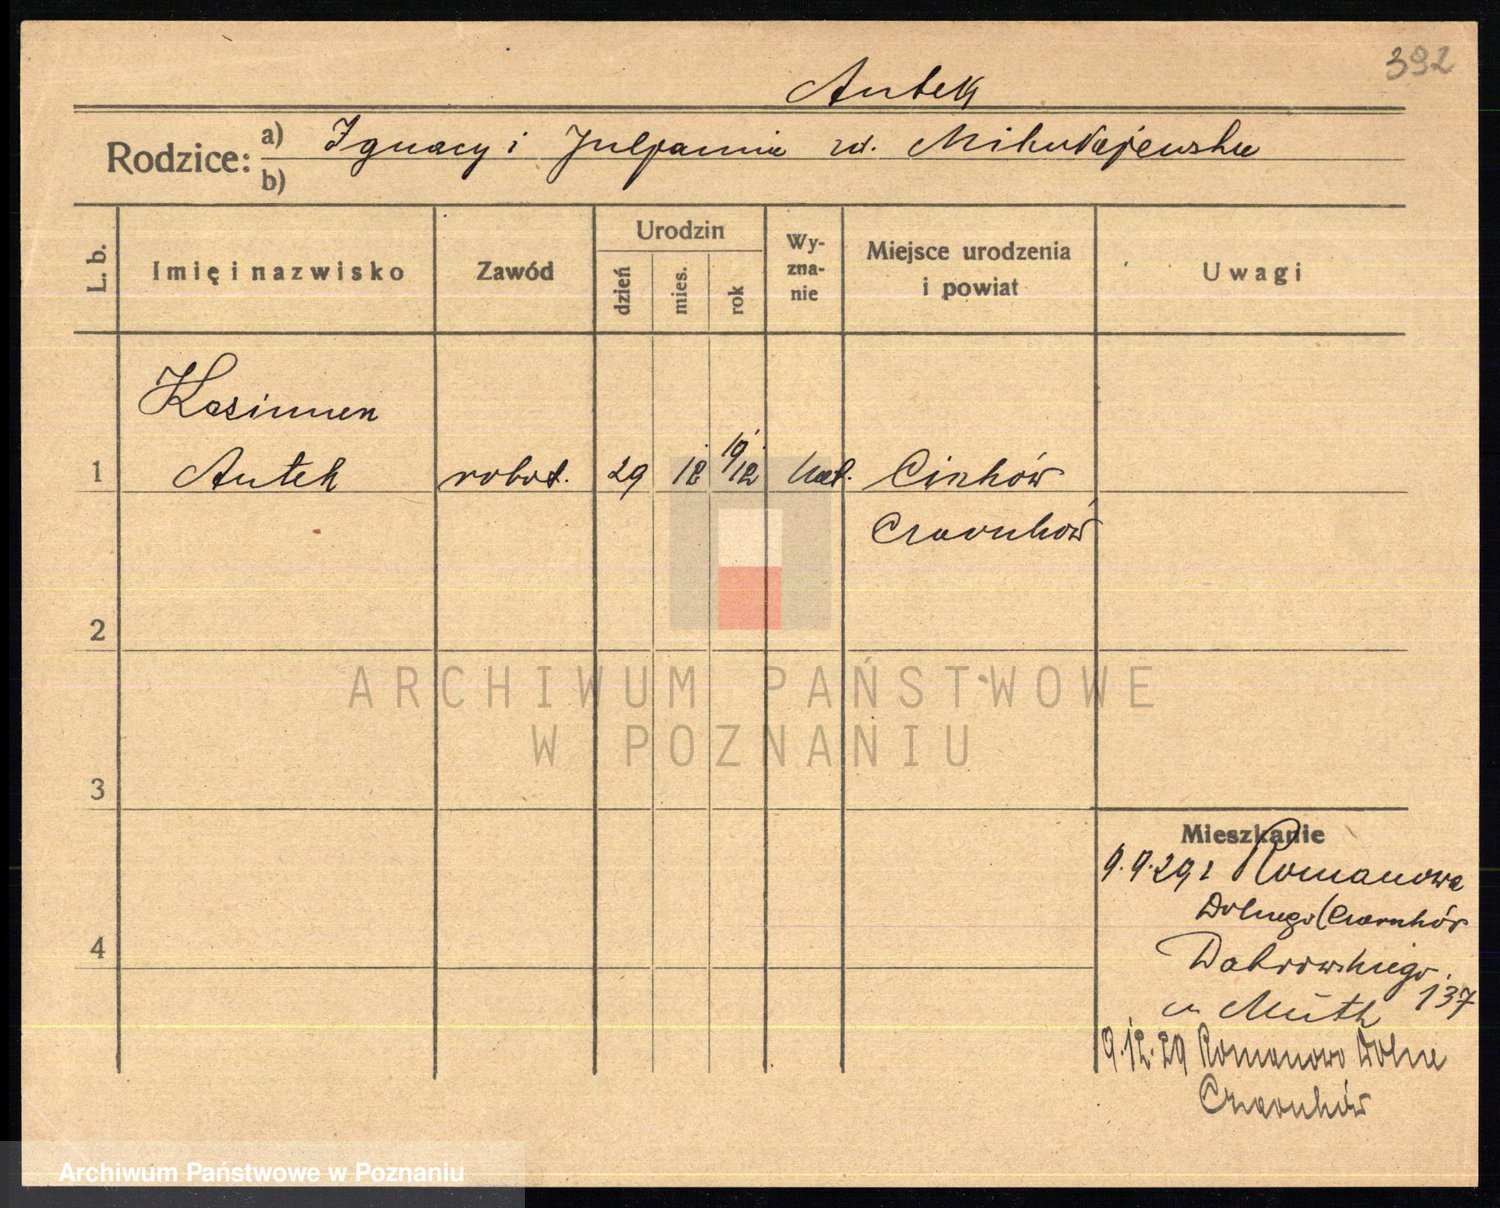 392
Antek
Rodzice: a) Ignacy i Julianna zd. Mikołajewska
b)
L. b. Imię i nazwisko Zawód Urodzin dzień mies. rok Wy-zna-nie Miejsce urodzenia i powiat Uwagi
Kasimier
1 Antek robot. 29 12 19/12 kat.
Czarnków
2
ARCHIWUM PAŃSTWOWE
W POZNANIU
3
Mieszkanie
9.9.29 z Romanowa
Dolnego (Czarnków
Dąbrowskiego 137
u Muth
4
9.12.29 Romanowo Dolne
Czarnków
Archiwum Państwowe w Poznaniu